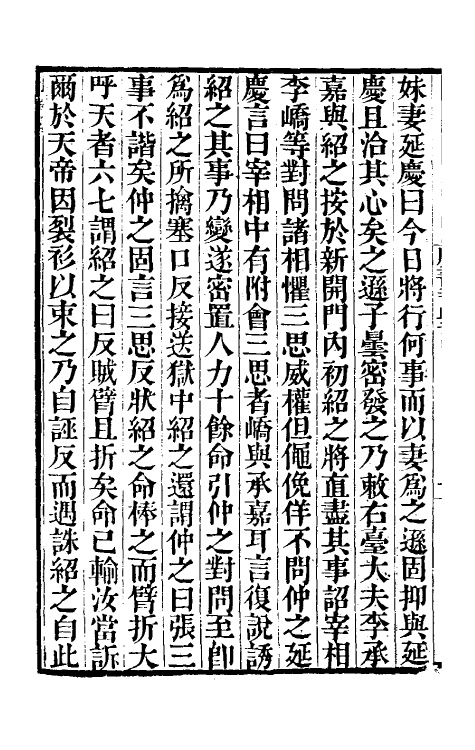 妹妻延慶曰今日將行何事而以妻爲之遜固抑與延
慶且治其心矣之遜子曇密發之乃敕右臺大夫李承
嘉與紹之按於新開門內初紹之將直盡其事詔宰相
李嶠等對問諸相懼三思威權但僶俛佯不問仲之延
慶言曰宰相中有附會三思者嶠與承嘉耳言復說誘
紹之其事乃變遂密置人力十餘命引仲之對問至卽
爲紹之所擒塞口反接送獄中紹之還謂仲之曰張三
事不諧矣仲之固言三思反狀紹之命棒之而臂折大
呼天者六七謂紹之曰反賊臂且折矣命已輸汝當訴
爾於天帝因裂衫以束之乃自誣反而遇誅紹之自此